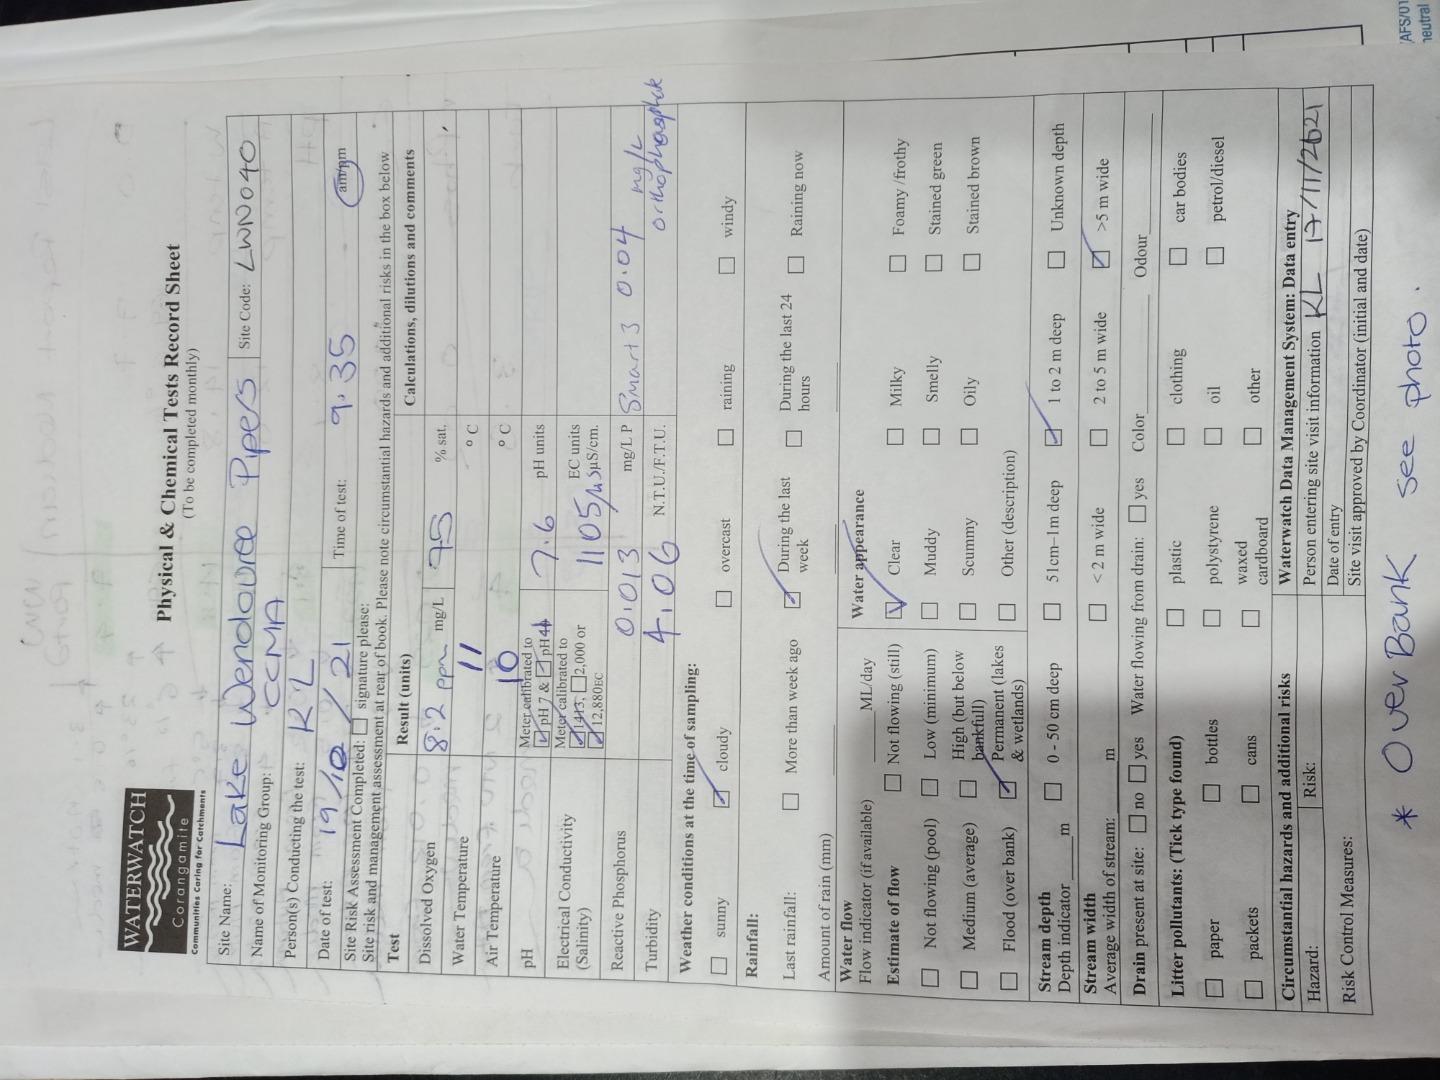 WATERWATCH
Corangamite
Communities Caring for Catchments
Physical & Chemical Tests Record Sheet
(To be completed monthly)
Site Name: Lake Wendouree Pipers Site Code: LWN040
Name of Monitoring Group: CCMA
Person(s) Conducting the test: RL
Date of test: 19/10/21 Time of test: 9.35 am/pm
Site Risk Assessment Completed: ☐ signature please:
Site risk and management assessment at rear of book. Please note circumstantial hazards and additional risks in the box below
Test Result (units) Calculations, dilutions and comments
Dissolved Oxygen 8.2 ppm mg/L 75 % sat.
Water Temperature 11 °C
Air Temperature 10 °C
pH Meter calibrated to ☑ pH 7 & ☑ pH 7.6 pH units
Electrical Conductivity (Salinity) Meter calibrated to ☑ 1413; ☐ 2,000 or ☑ 12,880EC 1105 µS EC units µS/cm.
Reactive Phosphorus 0.013 mg/L P Smart 3 0.04 mg/L
Turbidity 4.06 N.T.U./F.T.U. orthophosphate
Weather conditions at the time of sampling:
☐ sunny ☑ cloudy ☐ overcast ☐ raining ☐ windy
Rainfall:
Last rainfall: ☐ More than week ago ☑ During the last week ☐ During the last 24 hours ☐ Raining now
Amount of rain (mm)
Water flow
Flow indicator (if available) ML/day
Estimate of flow ☐ Not flowing (still)
☐ Not flowing (pool) ☐ Low (minimum)
☐ Medium (average) ☐ High (but below bankfull)
☐ Flood (over bank) ☑ Permanent (lakes & wetlands)
Water appearance
☑ Clear ☐ Milky ☐ Foamy /frothy
☐ Muddy ☐ Smelly ☐ Stained green
☐ Scummy ☐ Oily ☐ Stained brown
☐ Other (description)
Stream depth
Depth indicator m ☐ 0 - 50 cm deep ☐ 51cm–1m deep ☑ 1 to 2 m deep ☐ Unknown depth
Stream width
Average width of stream: m ☐ < 2 m wide ☐ 2 to 5 m wide ☑ >5 m wide
Drain present at site: ☐ no ☐ yes Water flowing from drain: ☐ yes Color Odour
Litter pollutants: (Tick type found) ☐ plastic ☐ clothing ☐ car bodies
☐ paper ☐ bottles ☐ polystyrene ☐ oil ☐ petrol/diesel
☐ packets ☐ cans ☐ waxed cardboard ☐ other
Circumstantial hazards and additional risks
Hazard: Risk:
Risk Control Measures:
Waterwatch Data Management System: Data entry
Person entering site visit information KL 17/11/2021
Date of entry
Site visit approved by Coordinator (initial and date)
* Over Bank see photo.
AFS/01
neutral